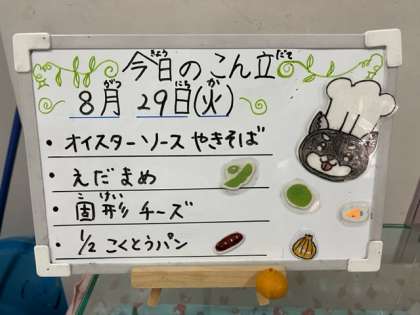 今日のこん立
8月 29日(火)
・オイスターソース やきそば
・えだまめ
・固形チーズ
・1/2 こくとうパン